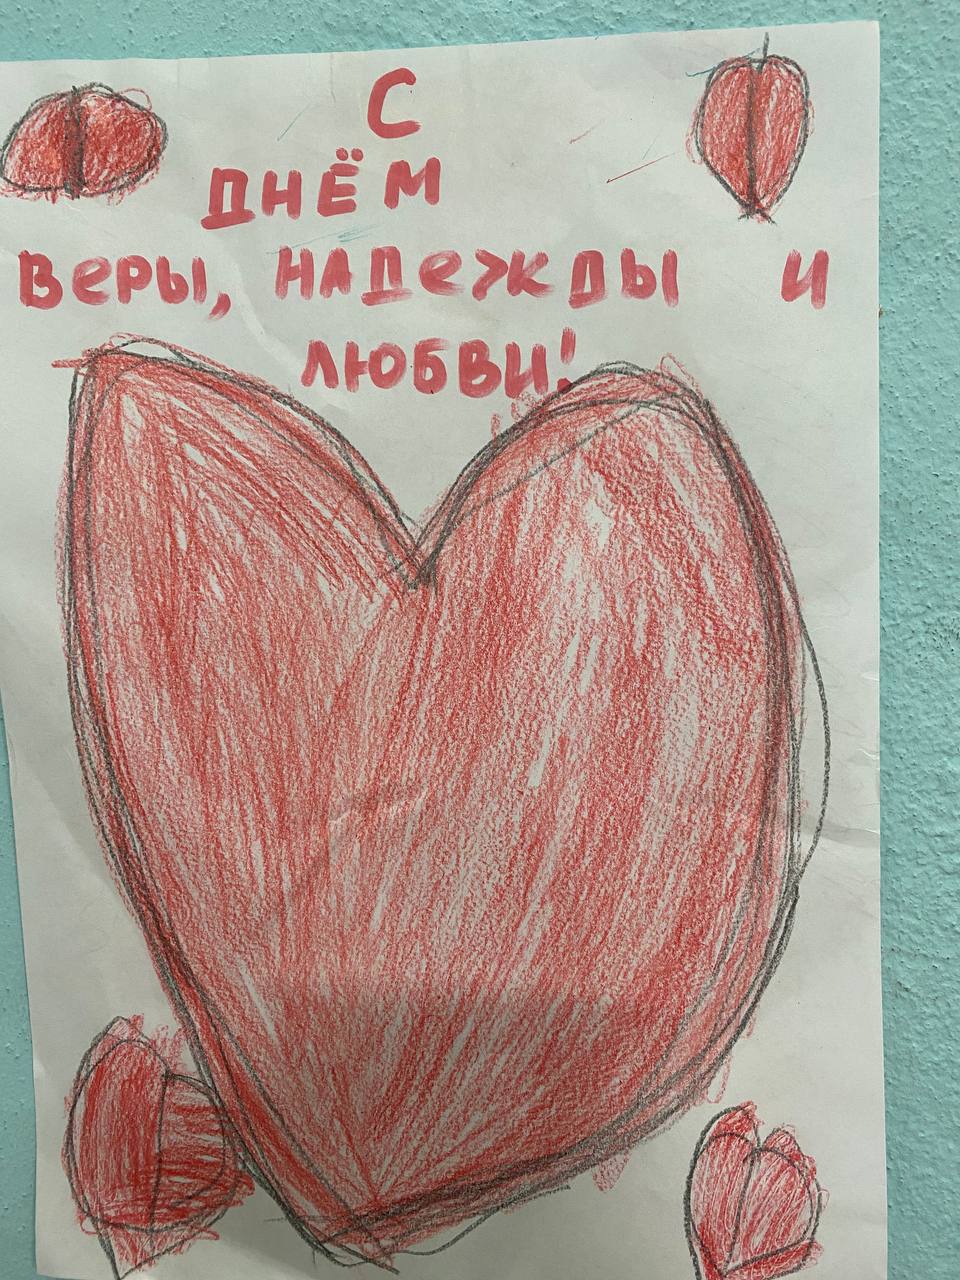 С
ДНЁМ
Веры, НАДежДы И
ЛЮБВИ!